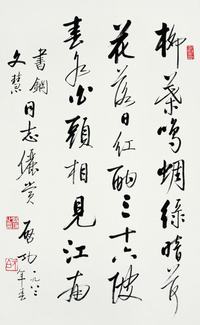 柳葉鳴蜩綠暗荷
花落日紅酣三十六陂
春水白頭相見江南
書鋼
文慧
同志儷賞
啟功
年春